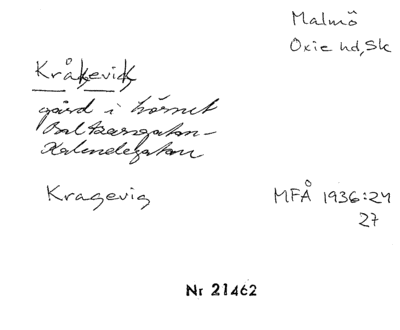 Malmö
Oxie hd, Sk
Kråkevik
gård i hörnet
Baltzarsgatan-
Kalendegatan
Kragevig
MFÅ 1936:24
27
Nr 21462